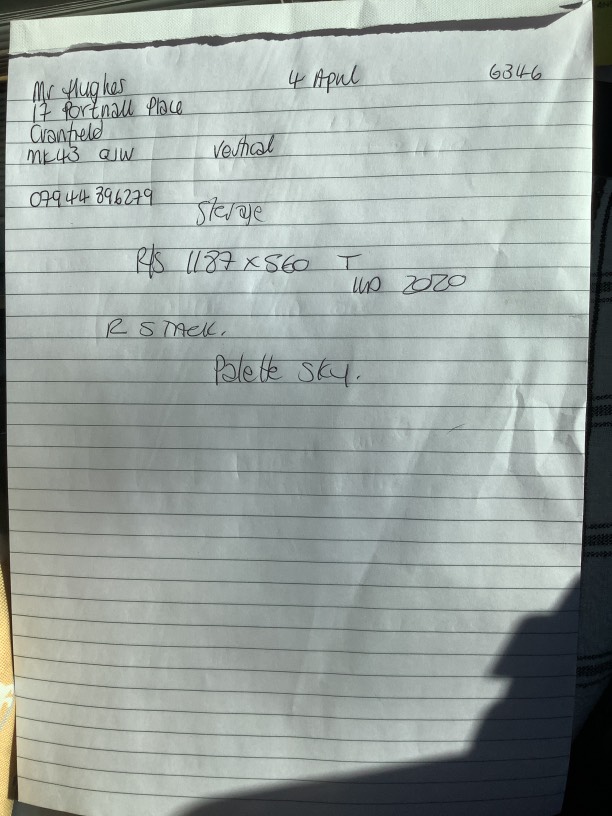 Mr Hughes 4 April 6346
17 Portnall Place
Cranfield
MK43 Vertical
07944 396279
Storage
R/S 1187 x 560 T
2020
R STACK.
Palette Sky.